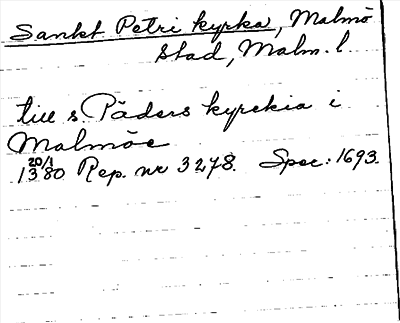 Sankt Petri kyrka, Malmö
stad, Malm. l.
till s. Päders kyrekia i
Malmöe
20/1
1380 Rep. nr 3278. Spec: 1693.